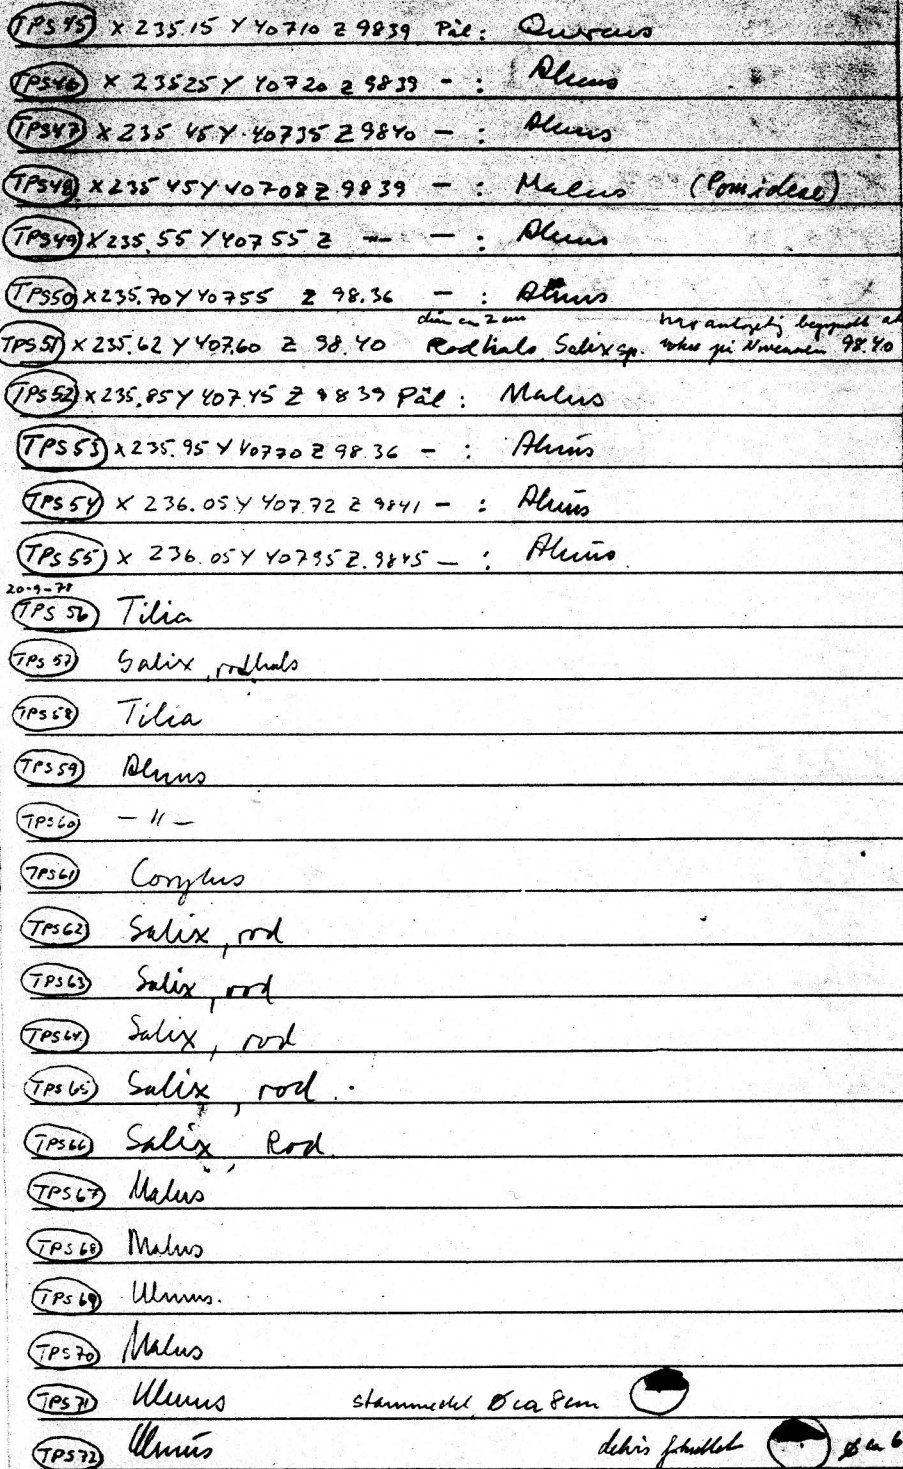 TPS45 X 235.15 Y 40710 Z 9839 Pæl: Quercus
TPS46 X 23525 Y 40720 Z 9839 - : Alnus
TPS47 X 235 45 Y 40735 Z 9840 - : Alnus
TPS48 X 235 45 Y 40708 Z 9839 - : Malus (Pomideae)
TPS49 X 235.55 Y 40755 Z - - : Alnus
TPS50 X 235.70 Y 40755 Z 98.36 - : Alnus
diam ca 2 cm
TPS51 X 235.62 Y 407.60 Z 98.40 Rodhals Salix sp. har antagelig begyndt at vokse på Niveauen 98.40
TPS52 X 235.85 Y 407.45 Z 9839 Pæl : Malus
TPS53 X 235.95 Y 40770 Z 98.36 - : Alnus
TPS54 X 236.05 Y 407.72 Z 9841 - : Alnus
TPS55 X 236.05 Y 40795 Z.9845 - : Alnus
20-9-78
TPS 56 Tilia
TPS 57 Salix, rodhals
TPS58 Tilia
TPS59 Alnus
TPS60 - 11 -
TPS61 Corylus
TPS62 Salix, rod
TPS63 Salix, rod
TPS64 Salix, rod
TPS65 Salix, rod.
TPS66 Salix, Rod.
TPS67 Malus
TPS68 Malus
TPS69 Ulmus.
TPS70 Malus
TPS71 Ulmus stammedel, Ø ca 8cm
TPS72 Ulmus delvis Ø ca 6